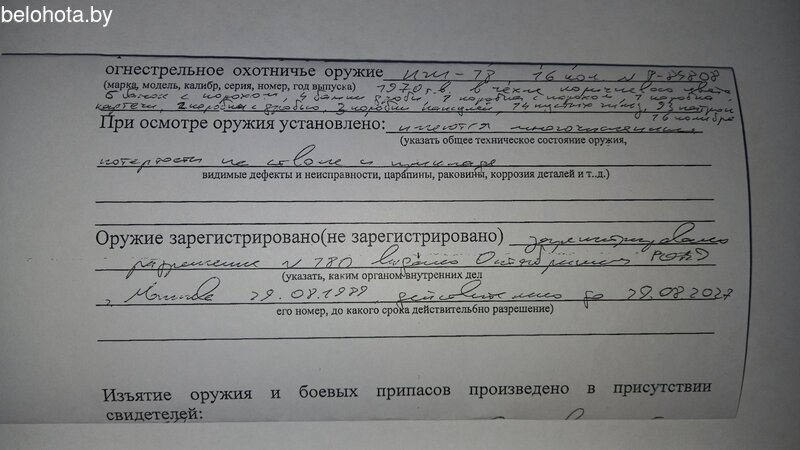 belohota.by
огнестрельное охотничье оружие ИЖ-18 16 кол. N
(марка, модель, калибр, серия, номер, год выпуска) 1970 г.в. в чехле коричневого цвета
5 банок с порохом, 4 банки дроби, 1 коробка с порохом, 1 коробка
картечи, 2 коробка с дробью, 3 коробки капсулей, 14 пустых гильз, 93 патрон
16 калибра
При осмотре оружия установлено: имеются многочисленные
(указать общее техническое состояние оружия,
потертости на стволе и прикладе
видимые дефекты и неисправности, царапины, раковины, коррозия деталей и т..д.)
Оружие зарегистрировано(не зарегистрировано) зарегистрировано
разрешение N 780 выдано Октябрьским РОВД
(указать, каким органом внутренних дел
г. Могилева 29.08.1989 действительно до 29.08.2027
его номер, до какого срока действительбно разрешение)
Изъятие оружия и боевых припасов произведено в присутствии
свидетелей: